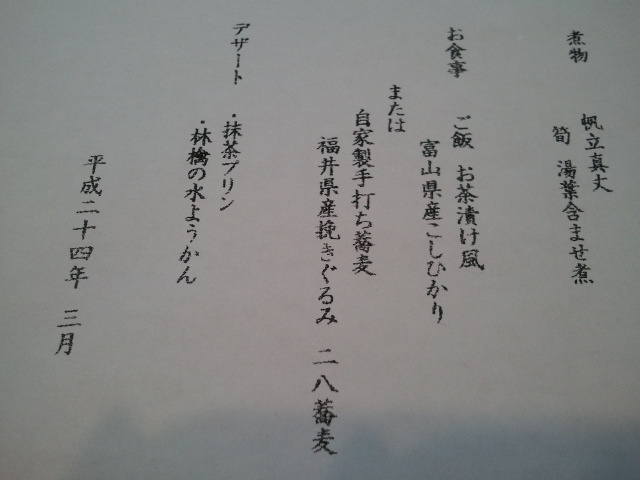 煮物
帆立真丈
筍 湯葉含ませ煮
お食事
ご飯 お茶漬け風
富山県産こしひかり
または
自家製手打ち蕎麦
福井県産挽きぐるみ 二八蕎麦
デザート
・抹茶プリン
・林檎の水ようかん
平成二十四年 三月